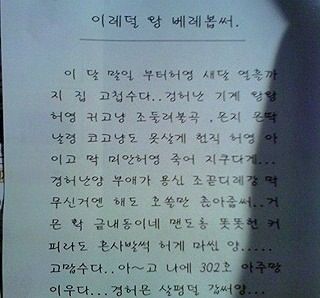 이레덜 왕 베레봅써.
이 달 말일 부터허영 새달 열흘까
지 집 고첩수다..경허난 기계 왕왕
허영 귀고냥 조둘려불곡 ,몬지 몬딱
날령 코고냥도 못살게 헌직 허영 아
이고 막 미안허영 죽어 지쿠다게...
경허난양 부애가 용신 조꼳디레강 막
무신거엔 해도 호쏠만 촘아줍써..거
은 확 금내동이네 맨도롱 똣똣헌 커
피라도 혼사발씩 허게 마씸 양.....
고맙수다..아~고 나에 302호 아주망
이우다...경허믄 상평덜 갑써양...